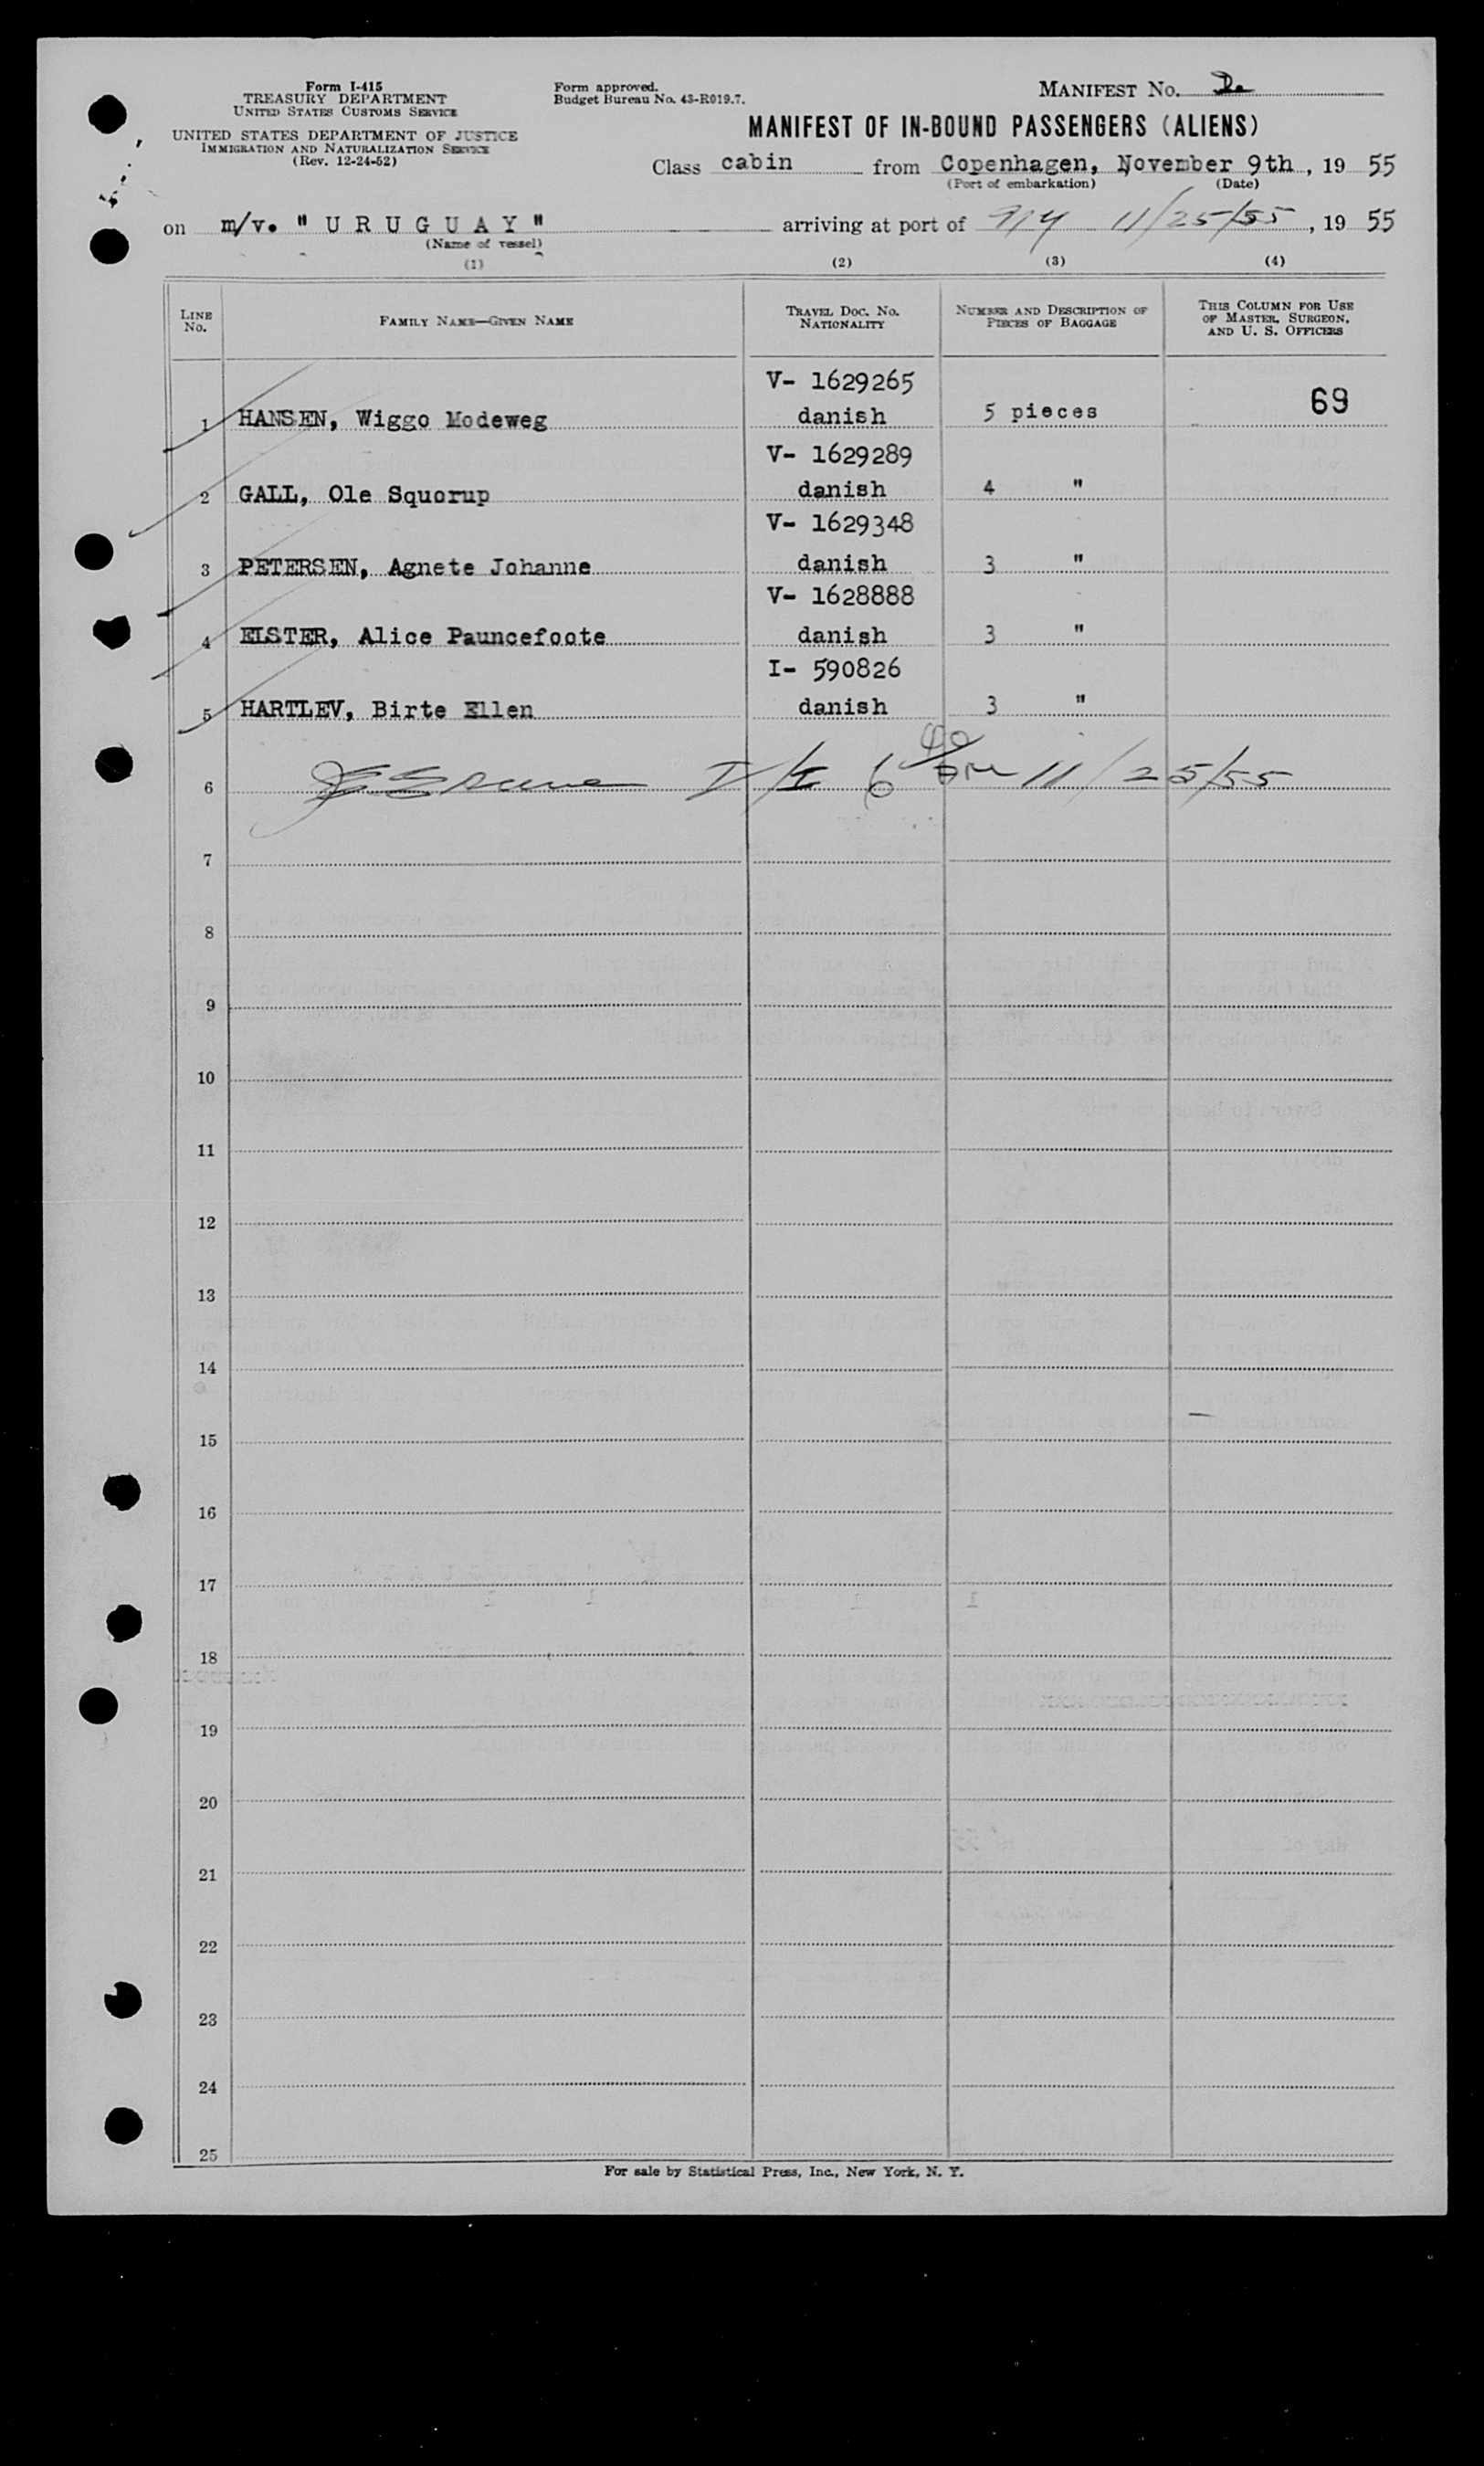 Form I-415
TREASURY DEPARTMENT
UNITED STATES CUSTOMS SERVICE
UNITED STATES DEPARTMENT OF JUSTICE
IMMIGRATION AND NATURALIZATION SERVICE
(Rev. 12-24-52)
Form approved.
Budget Bureau No. 43-R019.7.
MANIFEST No.
MANIFEST OF IN-BOUND PASSENGERS (ALIENS)
Class cabin from Copenhagen, November 9th, 19 55
(Port of embarkation) (Date)
on m/v. " U R U G U A Y " arriving at port of NY 11/25/55, 19 55
(Name of vessel)
(1) (2) (3) (4)
LINE No. FAMILY NAME—GIVEN NAME TRAVEL DOC. No. NATIONALITY NUMBER AND DESCRIPTION OF PIECES OF BAGGAGE THIS COLUMN FOR USE OF MASTER, SURGEON, AND U. S. OFFICERS
V- 1629265
1 HANSEN, Wiggo Modeweg danish 5 pieces 69
V- 1629289
2 GALL, Ole Squorup danish 4 "
V- 1629348
3 PETERSEN, Agnete Johanne danish 3 "
V- 1628888
4 ELSTER, Alice Pauncefoote danish 3 "
I- 590826
5 HARTLEV, Birte Ellen danish 3 "
6 I/I 6 40 PM 11/25/55
7
8
9
10
11
12
13
14
15
16
17
18
19
20
21
22
23
24
25
For sale by Statistical Press, Inc., New York, N. Y.